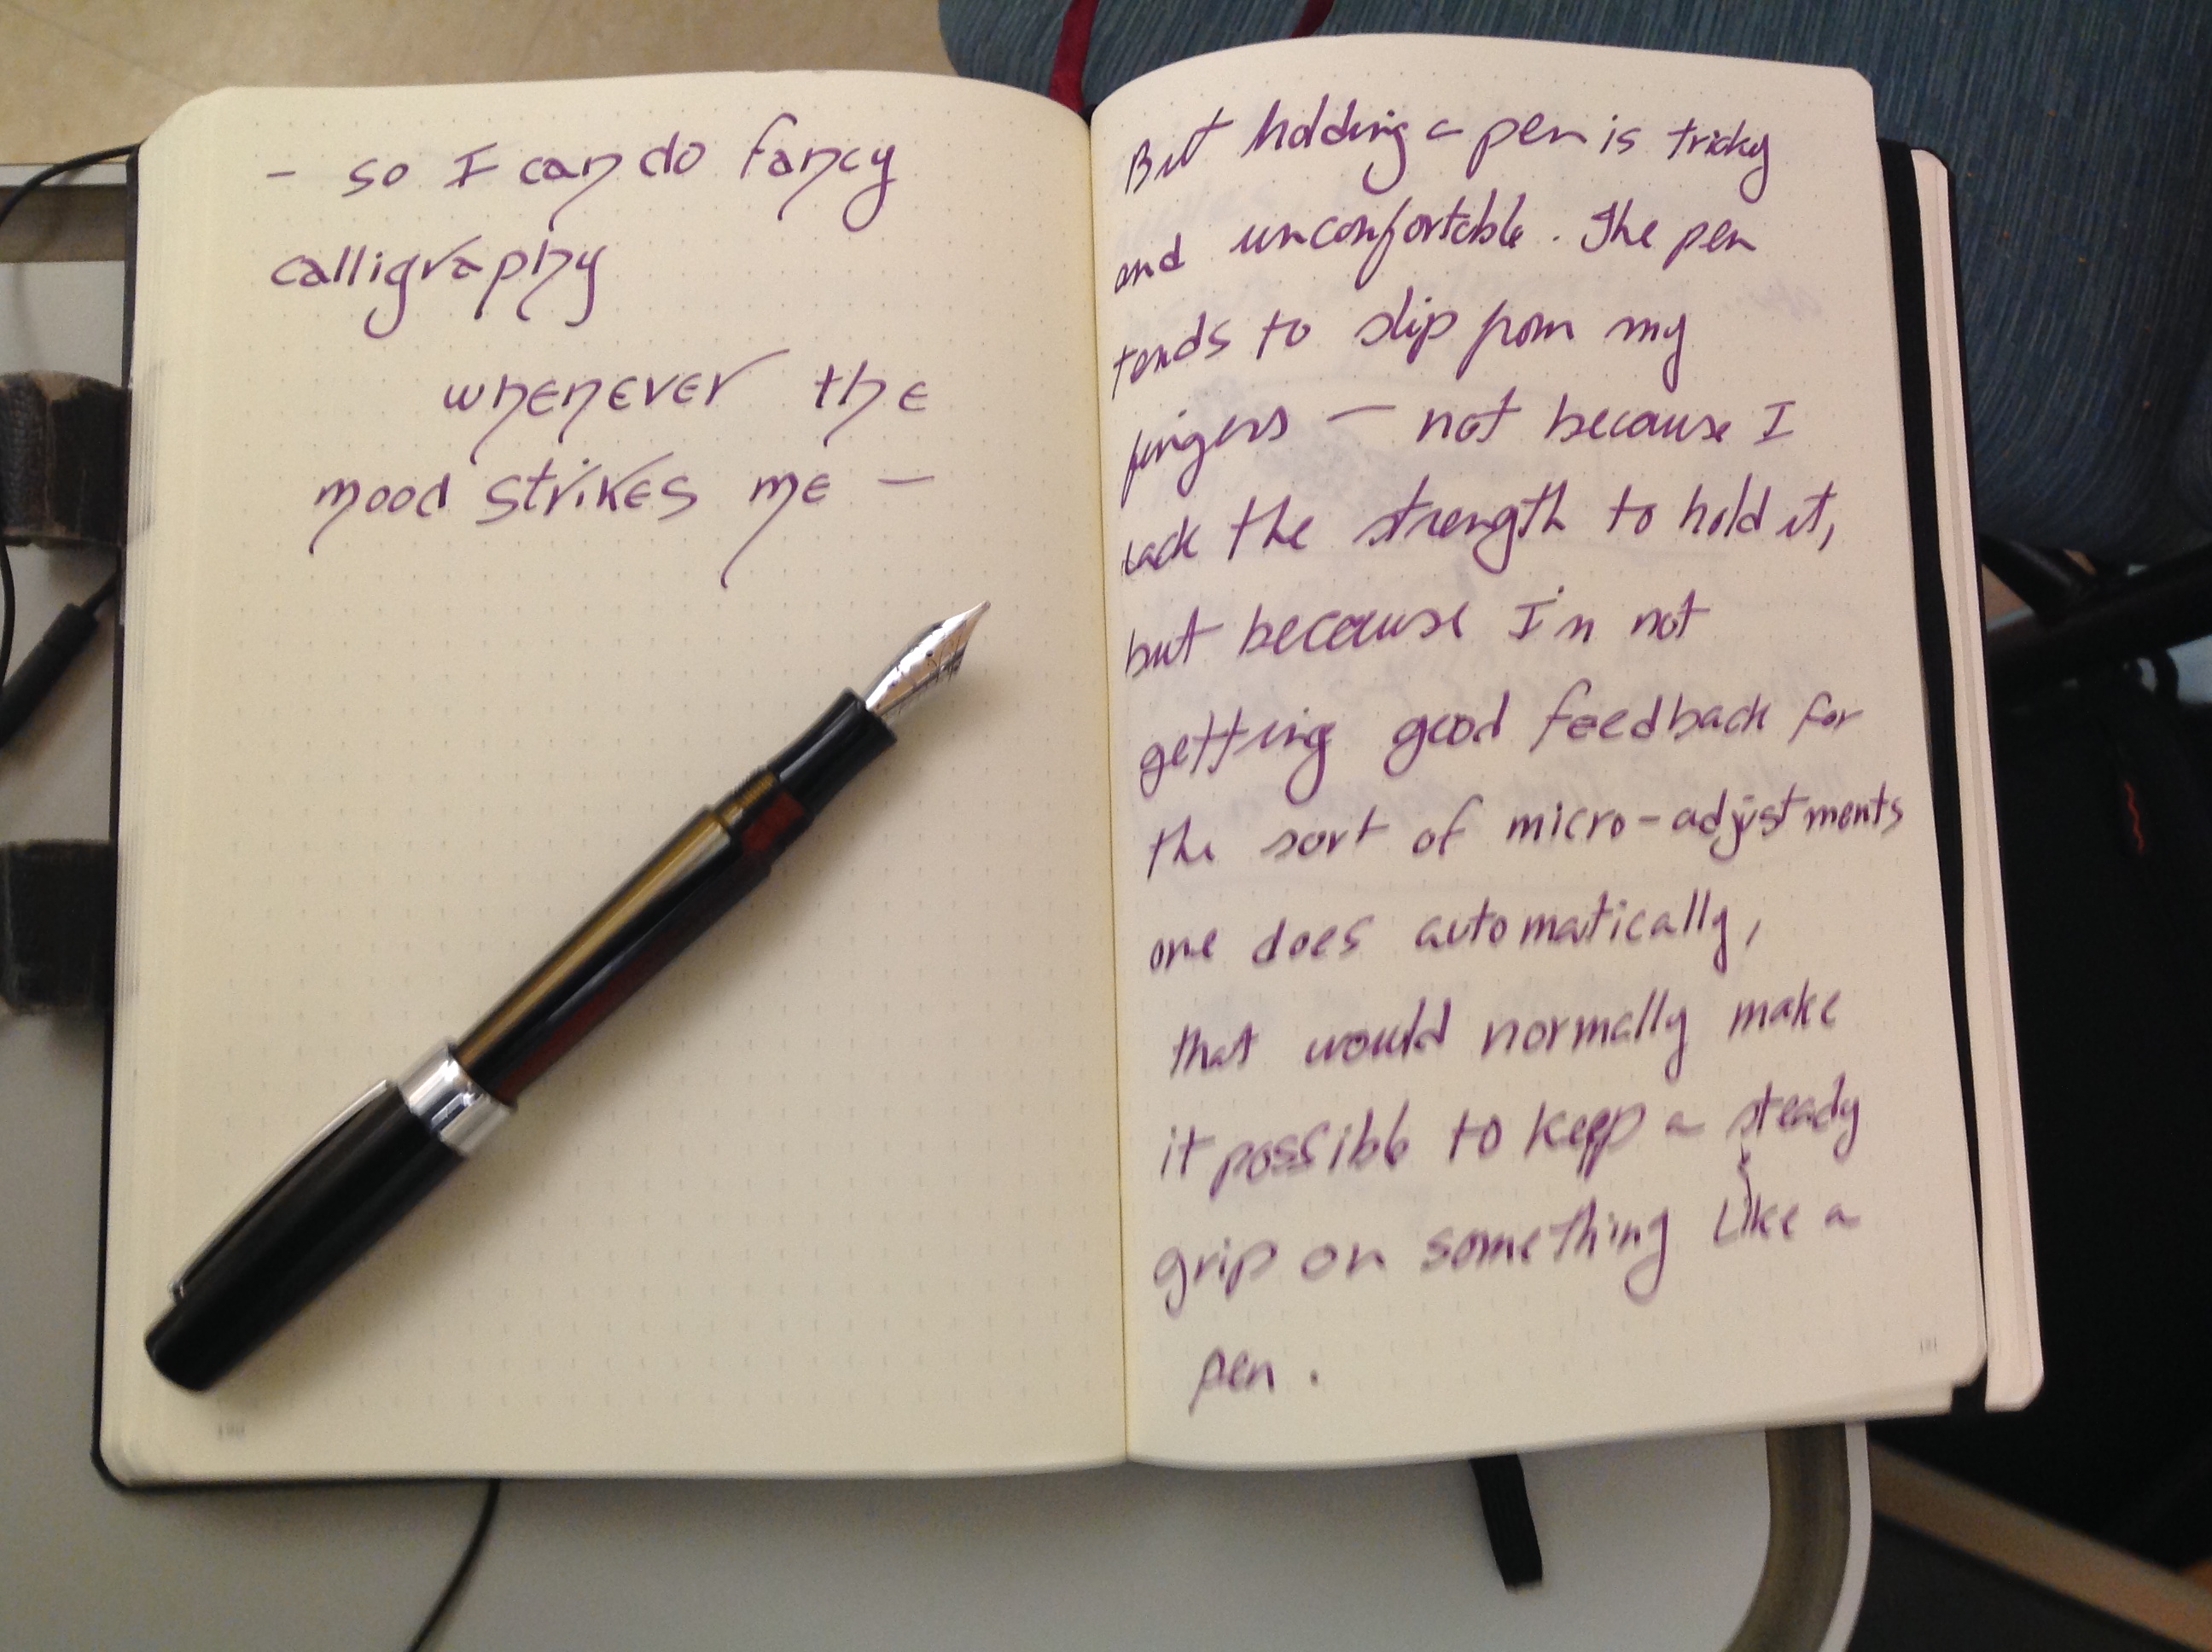 - so I can do fancy
calligraphy
whenever the
mood strikes me -
But holding a pen is tricky
and unconfortable. The pen
tends to slip from my
fingers - not because I
lack the strength to hold it,
but because I'm not
getting good feedback for
the sort of micro-adjustments
one does automatically,
that would normally make
it possible to keep a steady
grip on something like a
pen.